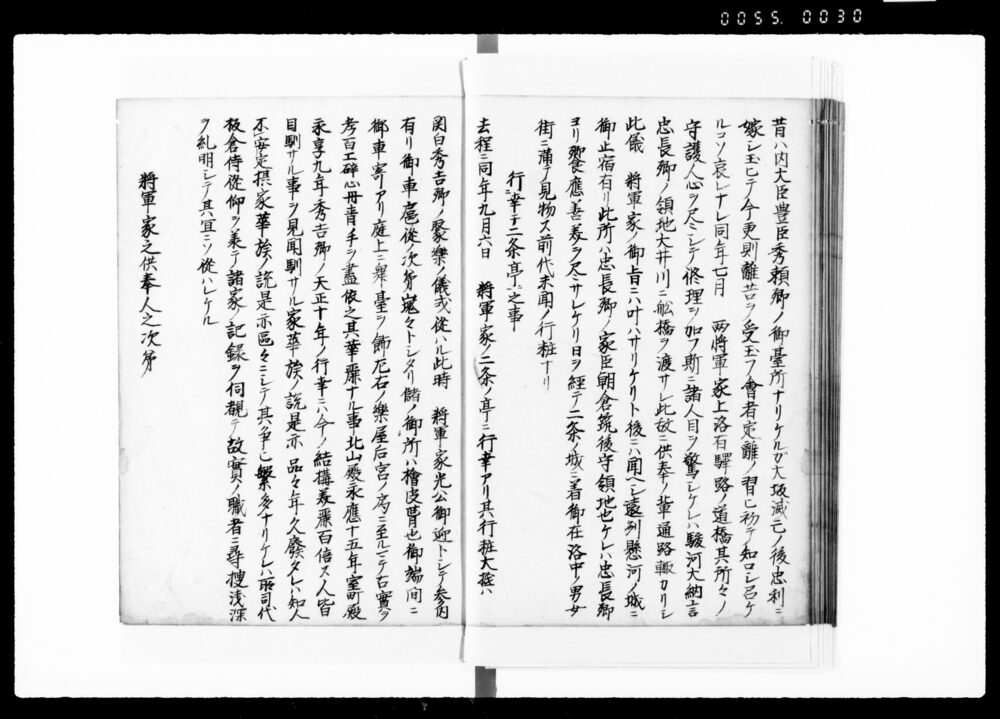 0055.0030
昔ハ内大臣豊臣秀頼卿ノ御臺所ナリケルガ大坂滅亡ノ後忠利ニ
嫁シ玉ヒテ今更則離苦ヲ受玉フ會者定離ノ習ヒ初テ知ロシ召ケ
ルコソ哀レナレ同年七月 两將軍家上洛有驛路ノ道橋其所々ノ
守護人心ヲ尽シテ修理ヲ加フ斯ニ諸人目ヲ驚シケレハ駿河大納言
忠長卿ノ領地大井川ニ舩橋ヲ渡サル此故ニ供奉ノ輩通路輙カリシ
此儀 將軍家ノ御旨ニハ叶ハサリケリト後ニハ聞ヘシ遠列懸河ノ城ニ
御止宿有リ此所ハ忠長卿ノ家臣朝倉筑後守領地也ケレハ忠長卿
ヨリ饗應善美ヲ尽サレケリ日ヲ經テ二条ノ城ニ着御在洛中ノ男女
街ニ滿テ見物ス前代未聞ノ行粧ナリ
行幸于二条亭ニ之事
去程ニ同年九月六日 將軍家ノ二条ノ亭ニ行幸アリ其行粧大抵ハ
関白秀吉卿ノ聚樂ノ儀或從ハル此時 將軍家光公御迎トシテ参内
有リ御車扈從ノ次第嵬々トシタリ儲ノ御所ハ檜皮葺也御端間ニ
御車寄アリ庭上ニ舞臺ヲ飾尼右ノ樂屋后宮ノ房ニ至ルマテ右實ヲ
考百工碎心丹青手ヲ盡依之其華麗ナル事北山殿永應十五年室町殿
永享九年秀吉卿ノ天正十年ノ行幸ニハ今ノ結構美麗百倍ス人皆
目馴サル事ヲ見聞馴サル家華族ノ説是亦 品々年久廢タレハ知人
不安定摂家華族ノ説是亦區々ニシテ其争ヒ繁多ナリケレハ所司代
板倉侍從仰ヲ義テ諸家ノ記録ヲ伺覩テ故實ノ職者ニ尋捜浅深
ヲ糺明シテ其宜ニソ從ハレケル
將軍家之供奉人之次第